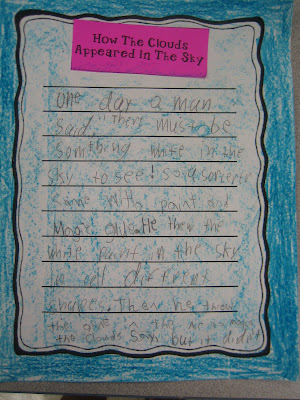 How The Clouds
Appeared In The Sky
One day a man
said, "There must be
something white in the
sky to see! So a
came with paint and
Magic He threw the
white paint in the sky
in all different
shapes. Then he threw
the in the
the clouds but it didn't